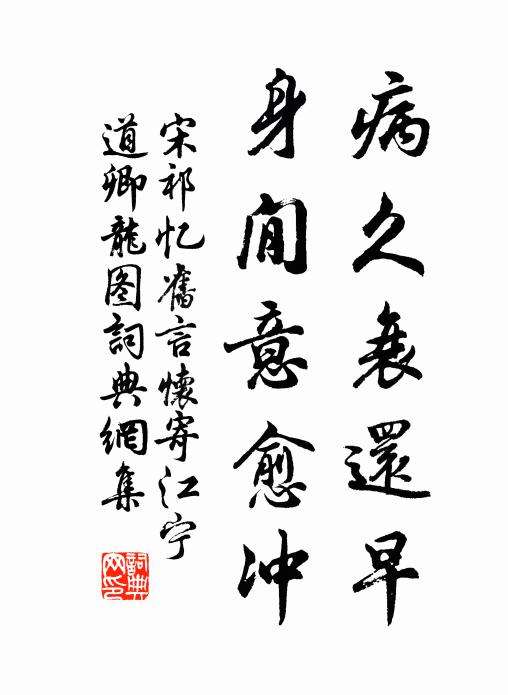 病久衰還早
身閒意愈冲
宋祁忆舊言懷寄江宁
道卿龍图詞典網集
詞典
网印